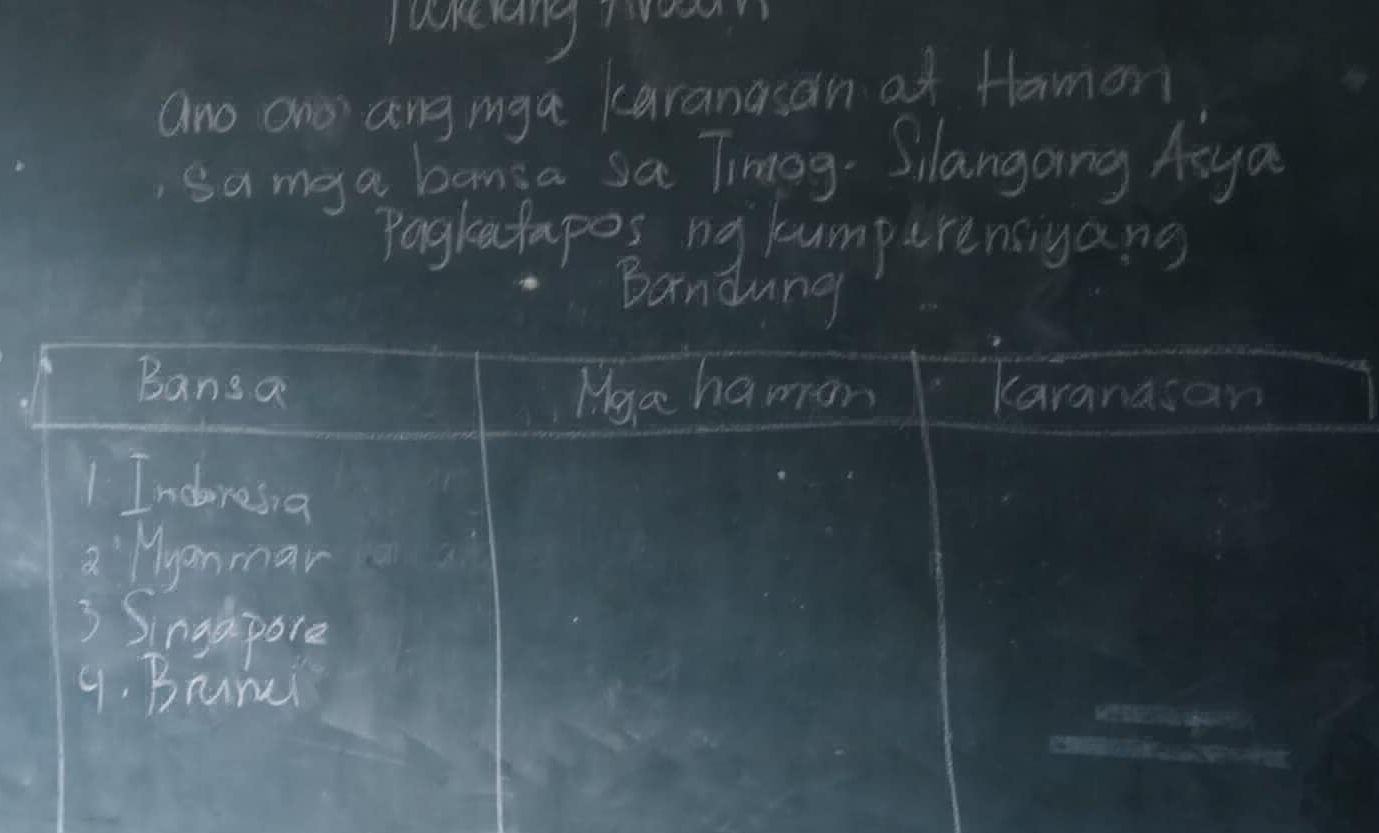 ano ano ang mga karanasan at Hamon
sa mga bansa sa Timog-Silangang Asya
Pagkatapos ng kumperensiyang
Bandung
Bansa Mga hamon karanasan
1 Indonesia
2 Myanmar
3 Singapore
4. Brunei